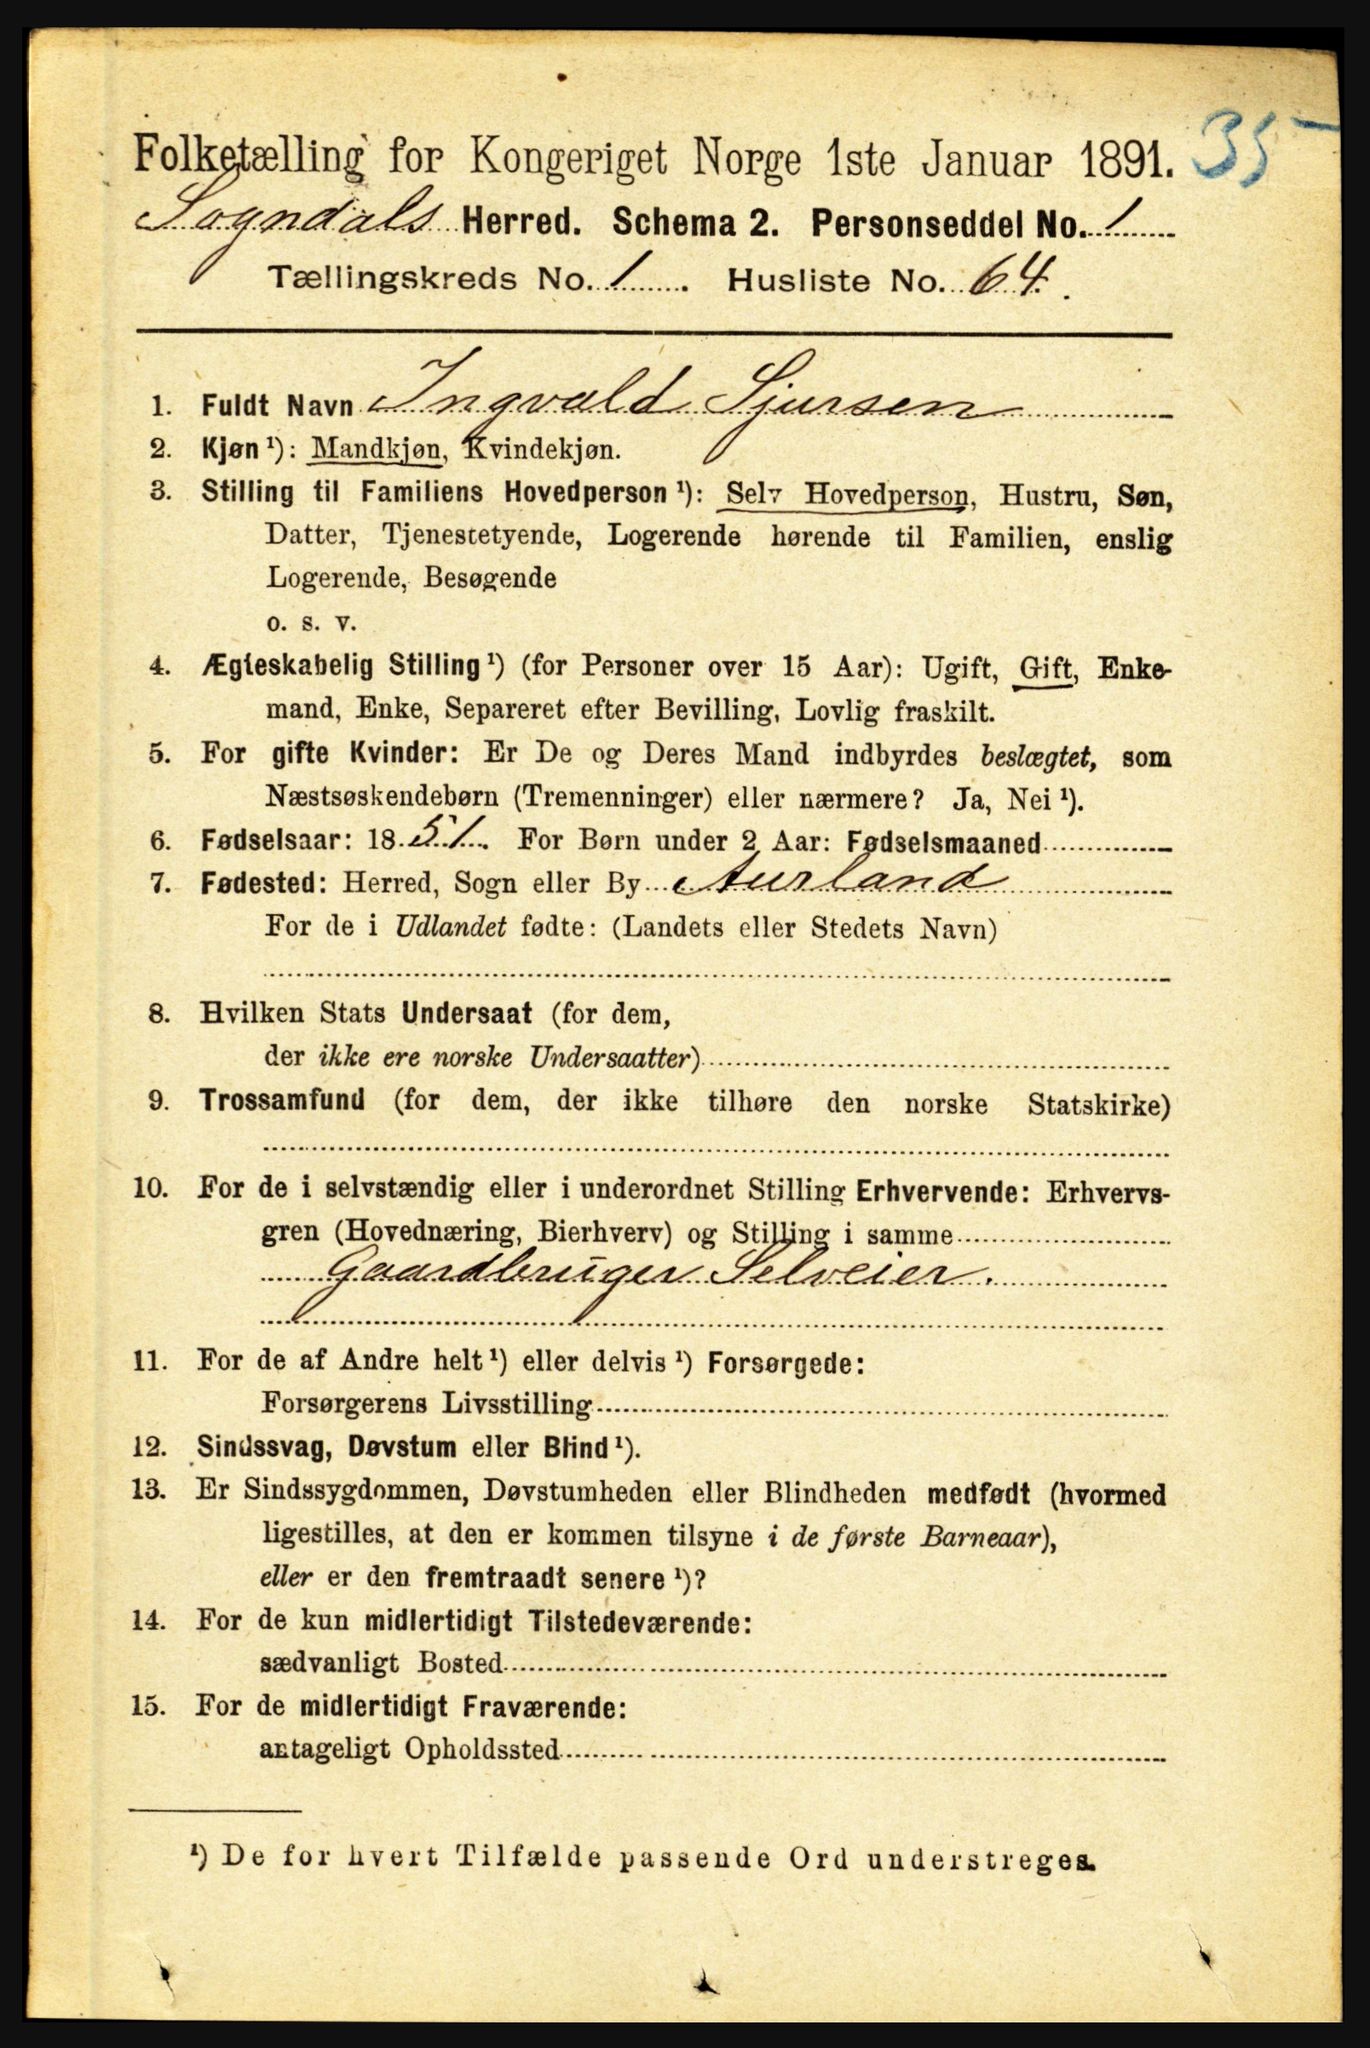 Folketælling for Kongeriget Norge 1ste Januar 1891. 35
Sogndals Herred. Schema 2. Personseddel No. 1
Tællingskreds No. 1. Husliste No. 64.
1. Fuldt Navn Ingvald Sjursen
2. Kjøn ¹): Mandkjøn, Kvindekjøn.
3. Stilling til Familiens Hovedperson ¹): Selv Hovedperson, Hustru, Søn,
Datter, Tjenestetyende, Logerende hørende til Familien, enslig
Logerende, Besøgende
o. s. v.
4. Ægteskabelig Stilling ¹) (for Personer over 15 Aar): Ugift, Gift, Enke-
mand, Enke, Separeret efter Bevilling, Lovlig fraskilt.
5. For gifte Kvinder: Er De og Deres Mand indbyrdes beslægtet, som
Næstsøskendebørn (Tremenninger) eller nærmere? Ja, Nei ¹).
6. Fødselsaar: 1851. For Børn under 2 Aar: Fødselsmaaned
7. Fødested: Herred, Sogn eller By Aurland
For de i Udlandet fødte: (Landets eller Stedets Navn)
8. Hvilken Stats Undersaat (for dem,
der ikke ere norske Undersaatter)
9. Trossamfund (for dem, der ikke tilhøre den norske Statskirke)
10. For de i selvstændig eller i underordnet Stilling Erhvervende: Erhvervs-
gren (Hovednæring, Bierhverv) og Stilling i samme
Gaardbruger Selveier.
11. For de af Andre helt ¹) eller delvis ¹) Forsørgede:
Forsørgerens Livsstilling
12. Sindssvag, Døvstum eller Blind ¹).
13. Er Sindssygdommen, Døvstumheden eller Blindheden medfødt (hvormed
ligestilles, at den er kommen tilsyne i de første Barneaar),
eller er den fremtraadt senere ¹)?
14. For de kun midlertidigt Tilstedeværende:
sædvanligt Bosted
15. For de midlertidigt Fraværende:
antageligt Opholdssted
¹) De for hvert Tilfælde passende Ord understreges.